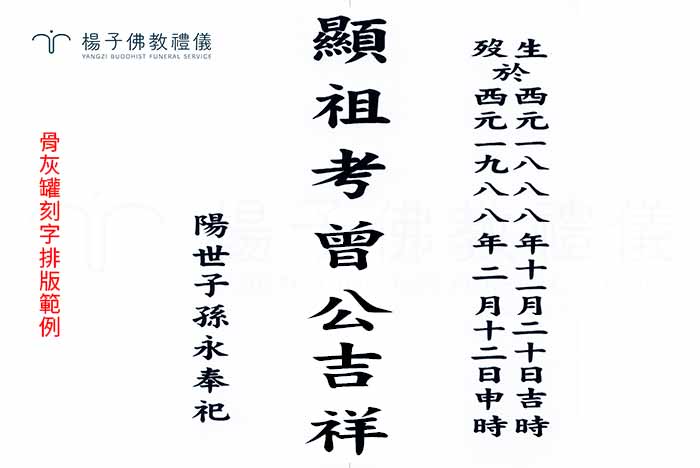 楊子佛教禮儀
YANGZI BUDDHIST FUNERAL SERVICE
生於西元一八八八年十一月二十日吉時
歿於西元一九八八年二月十二日申時
顯祖考曾公吉祥
陽世子孫永奉祀
骨灰罐刻字排版範例
楊子佛教禮儀